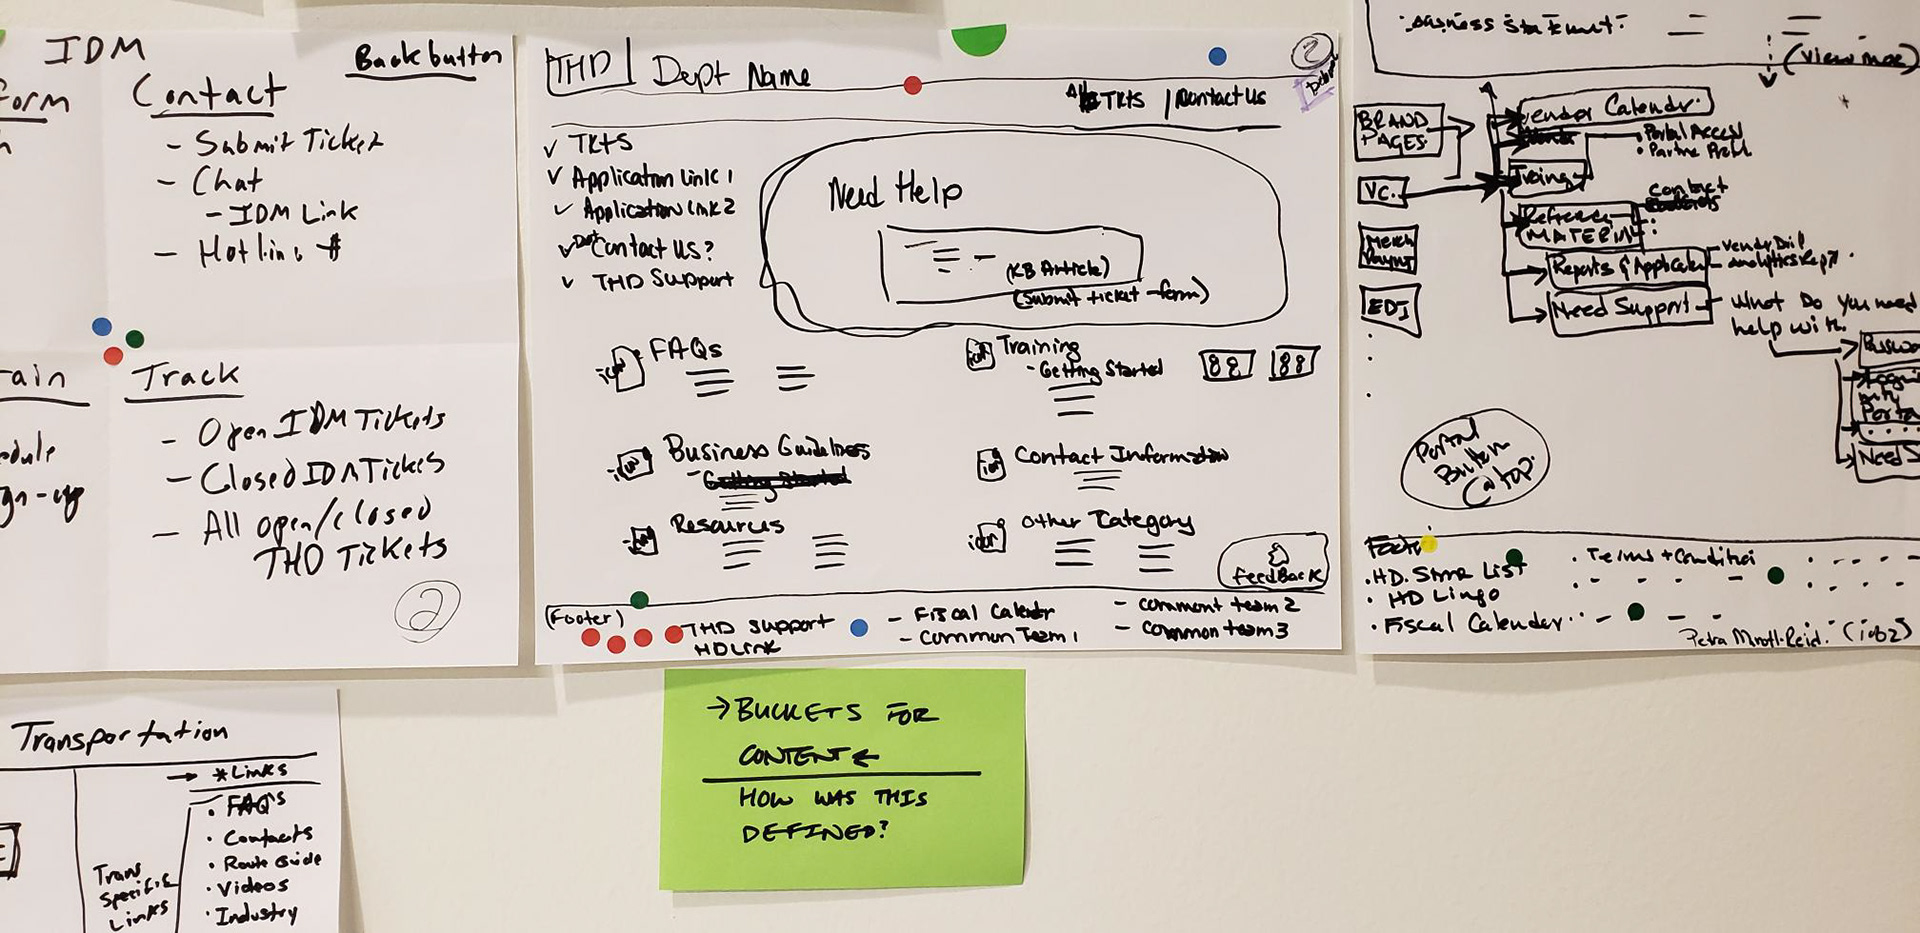 IDM
Back button
form
Contact
- Submit Ticket
- Chat
- IDM Link
- Hotline #
Track
- Open IDM Tickets
- Closed IDM Tickets
- All open/closed
THD Tickets
2
THD
Dept Name
2
TKTS | Contact Us
✓ TKTS
✓ Application Link 1
✓ Application Link 2
✓ Dept Contact Us?
✓ THD Support
Need Help
(KB Article)
(Submit ticket - form)
FAQs
Training
- Getting Started
Business Guidelines
- Getting Started
Contact Information
Resources
Other Category
feedBack
(Footer)
THD Support
HD Link
- Fiscal Calendr
- Common Team 1
- common team 2
- common team 3
Business Statement:
(View more)
BRAND
PAGES
VC.
EDI
Vendor Calendr.
• Portal Access
Traing
contact
Refrence
MATERIAL
Reports & Applicaton
Need Support
What Do you need
help with.
Portal
Button
@ top.
• HD. Store List
• HD Lingo
• Fiscal Calender
• Terms + Condition
(1 of 2)
Transportation
→ *Links
• FAQ's
• Contacts
• Route Guide
• Videos
• Industry
Tran
Specific
Links
→ BUCKETS FOR
CONTENT ←
HOW WAS THIS
DEFINED?